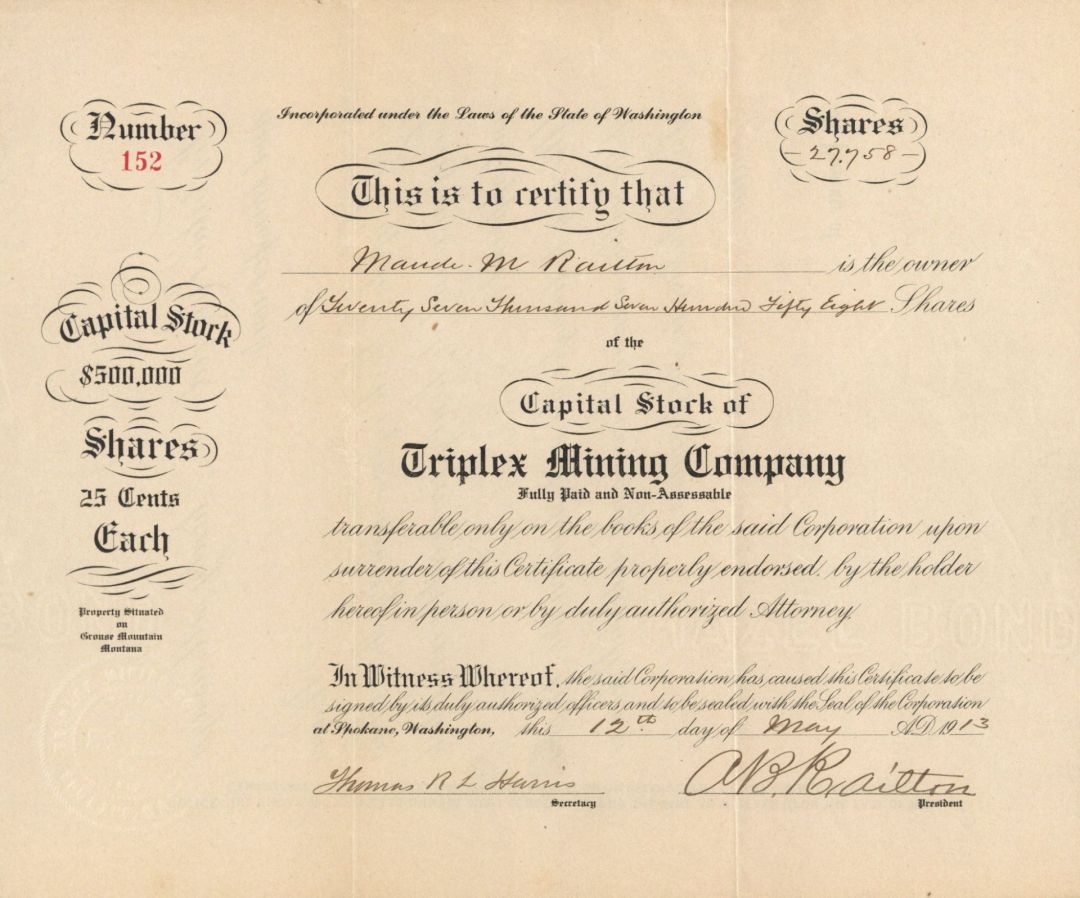 Number
152
Incorporated under the Laws of the State of Washington
Shares
27,758
This is to certify that
Maude. M Railton is the owner
of Twenty Seven Thousand Seven Hundred Fifty Eight Shares
of the
Capital Stock of
Triplex Mining Company
Fully Paid and Non-Assessable
transferable only on the books of the said Corporation upon
surrender of this Certificate properly endorsed. by the holder
hereof in person or by duly authorized Attorney.
Capital Stock
$500,000
Shares
25 Cents
Each
Property Situated
on
Grouse Mountain
Montana
In Witness Whereof, the said Corporation has caused this Certificate to be
signed by its duly authorized officers and to be sealed with the Seal of the Corporation
at Spokane, Washington, this 12th day of May A.D. 1913
Thomas R L Harris
Secretary
A.B. Railton
President